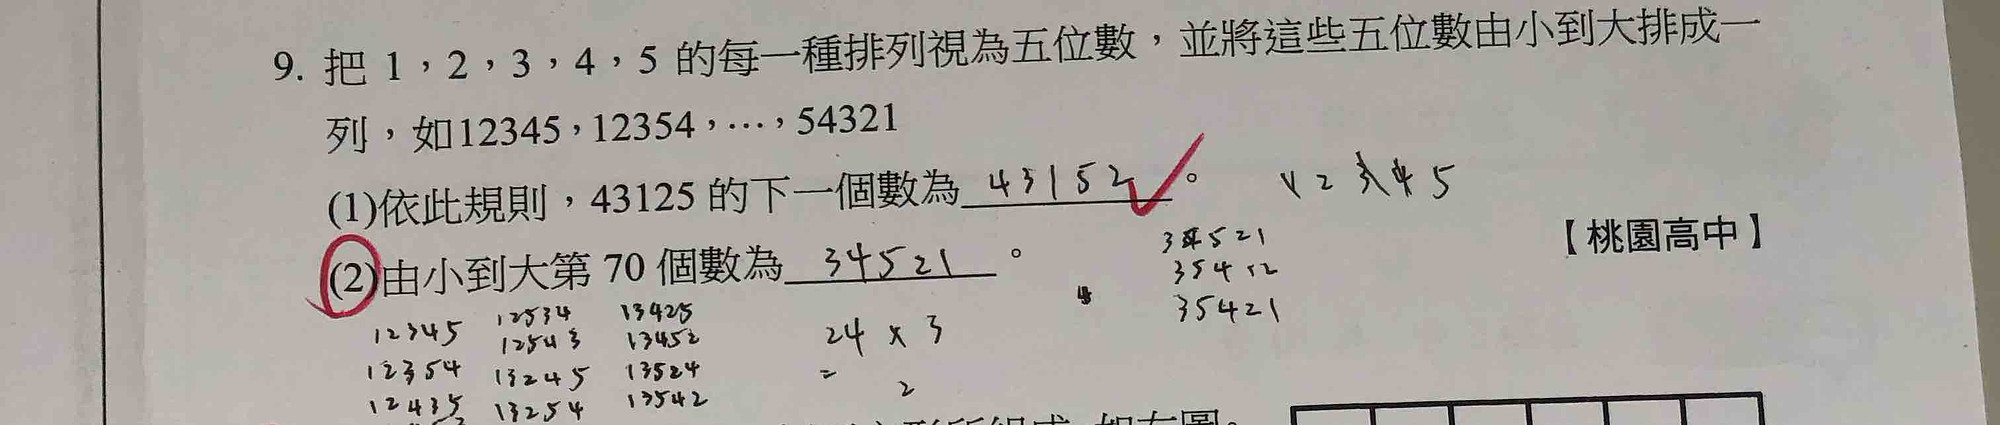 9. 把 1，2，3，4，5 的每一種排列視為五位數，並將這些五位數由小到大排成一
列，如12345，12354，…，54321
(1)依此規則，43125 的下一個數為 43152 。
1 2 3 4 5
【桃園高中】
(2)由小到大第 70 個數為 34521 。
34521
35412
35421
12345 12534 13425
12354 12543 13452
12435 13245 13524
13254 13542
24 × 3
=
2